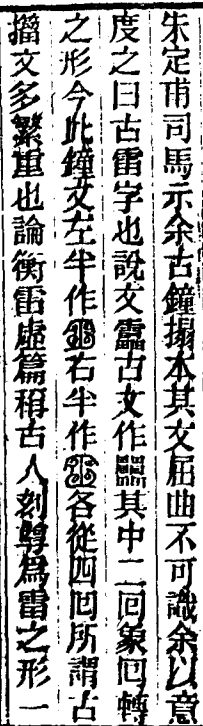 朱定甫司馬示余古鐘搨本其文屈曲不可識余以意
度之曰古雷字也說文靁古文作其中二回象回轉
之形今此鐘文左半作右半作各從四回所謂古
籀文多繁重也論衡雷虛篇稱古人刻尊爲雷之形一